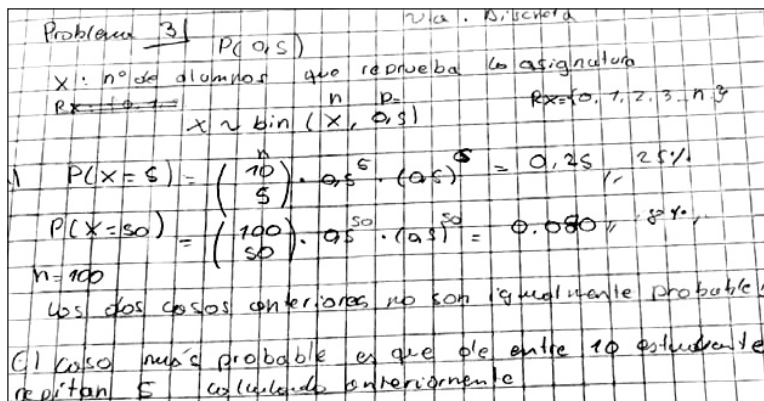 Problema 3|
v.a. Discreta
P(0,5)
X: n° de alumnos que reprueba la asignatura
Rx={0,1 n p= Rx={0, 1, 2, 3...n}
X ~ bin (X, 0,5)
P(X=5) = (10 5) · 0,5^5 · (0,5)^5 = 0,25,, 25%
P(X=50) = (100 50) · 0,5^50 · (0,5)^50 = 0.080,, 8%,,
n=100
Los dos casos anteriores no son igualmente probables
C) caso más probable es que de entre 10 estudiante
repitan 5 calculado anteriormente